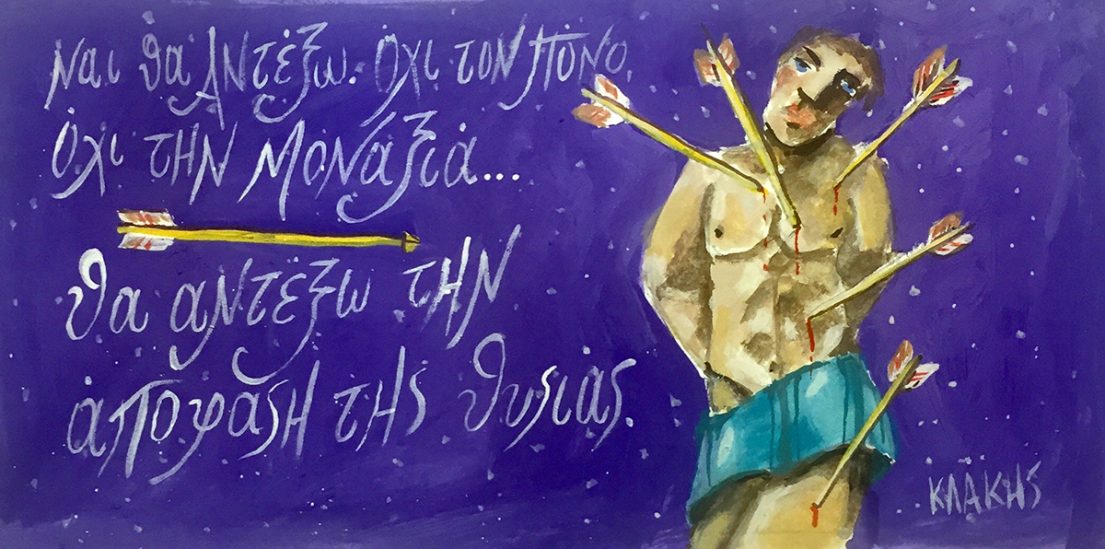 Ναι θα Αντέξω. Όχι τον Πόνο.
Όχι τΗΝ Μοναξιά...
θα αντέξω τΗΝ
απόφαση της θυσίας.
ΚΛΑΚΗΣ